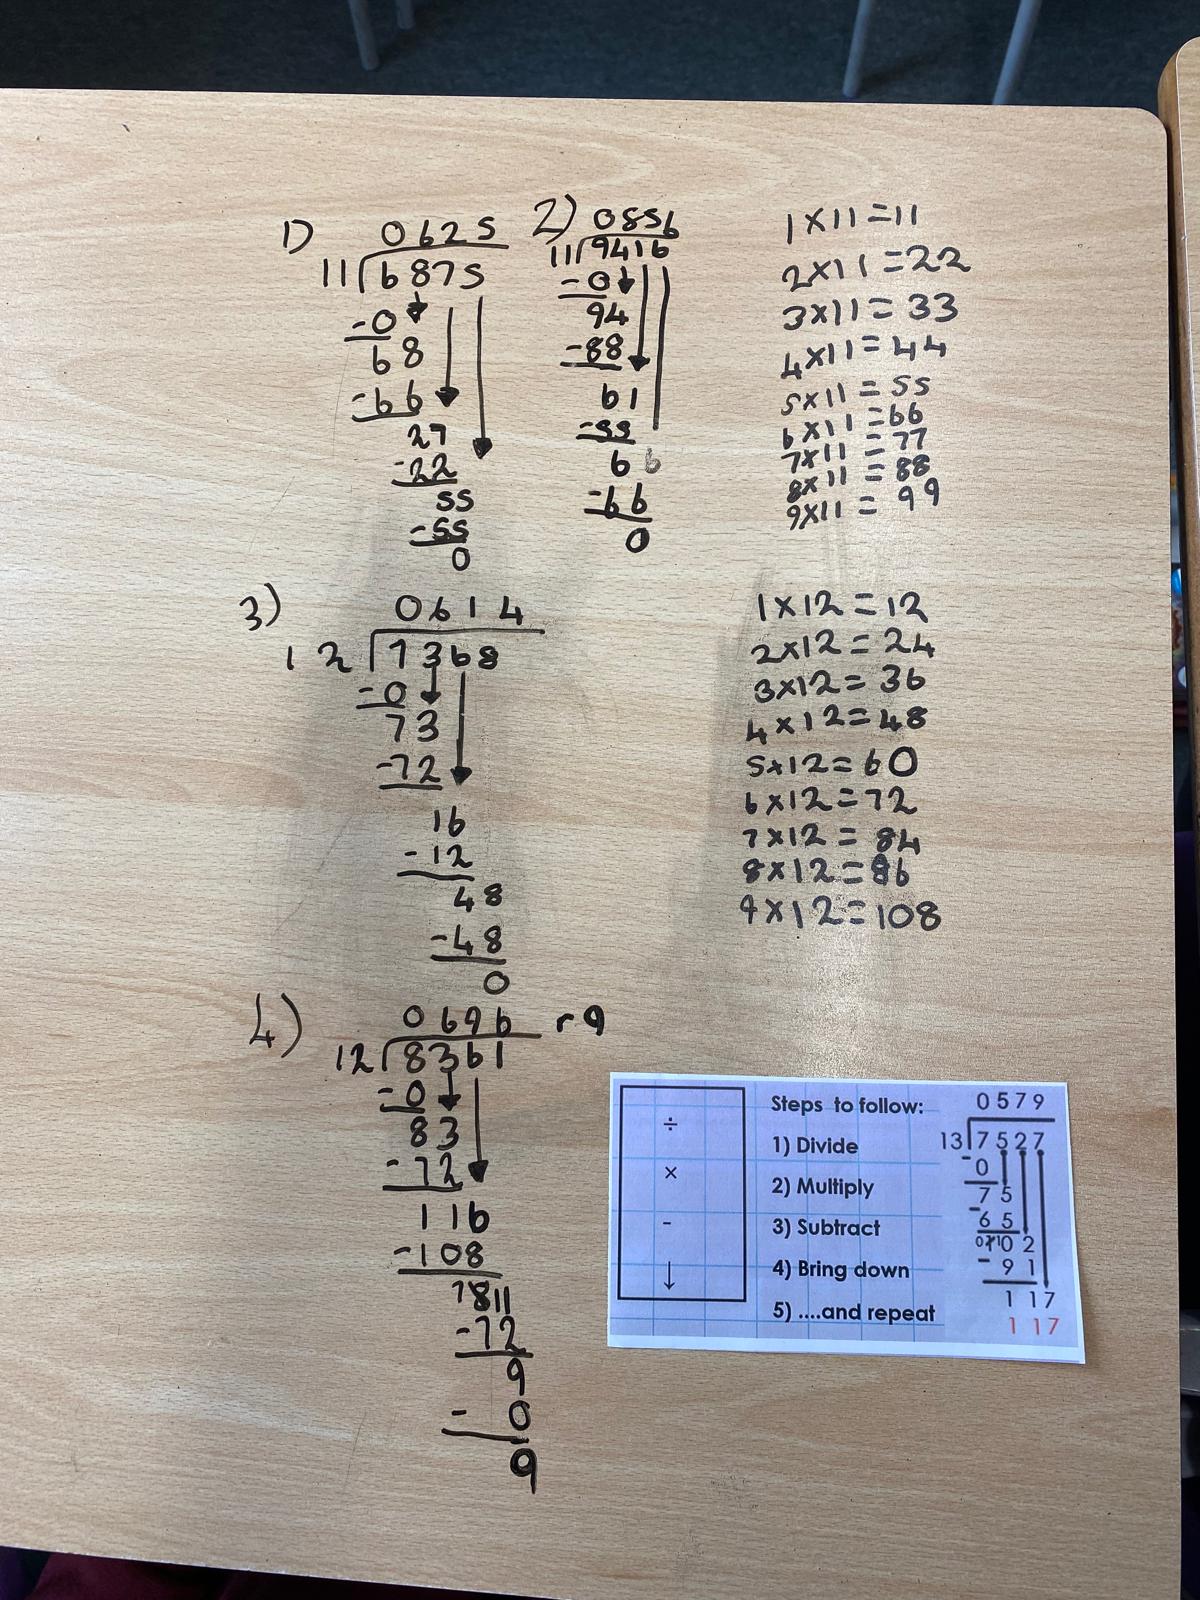 1) 0625
11 6875
-0
68
-66
27
-22
55
-55
0
2) 0856
11 9416
-0
94
-88
61
-55
66
-66
0
1×11=11
2×11=22
3×11=33
4×11=44
5×11=55
6×11=66
7×11=77
8×11=88
9×11=99
3) 0614
12 7368
-0
73
-72
16
-12
48
-48
0
1×12=12
2×12=24
3×12=36
4×12=48
5×12=60
6×12=72
7×12=84
8×12=96
9×12=108
4) 0696 r9
12 8361
-0
83
-72
116
-108
7811
-72
9
- 0
9
÷
×
-
↓
Steps to follow:
1) Divide
2) Multiply
3) Subtract
4) Bring down
5) ....and repeat
0579
13 7527
-0
75
-65
0 1 10 2
-91
117
117